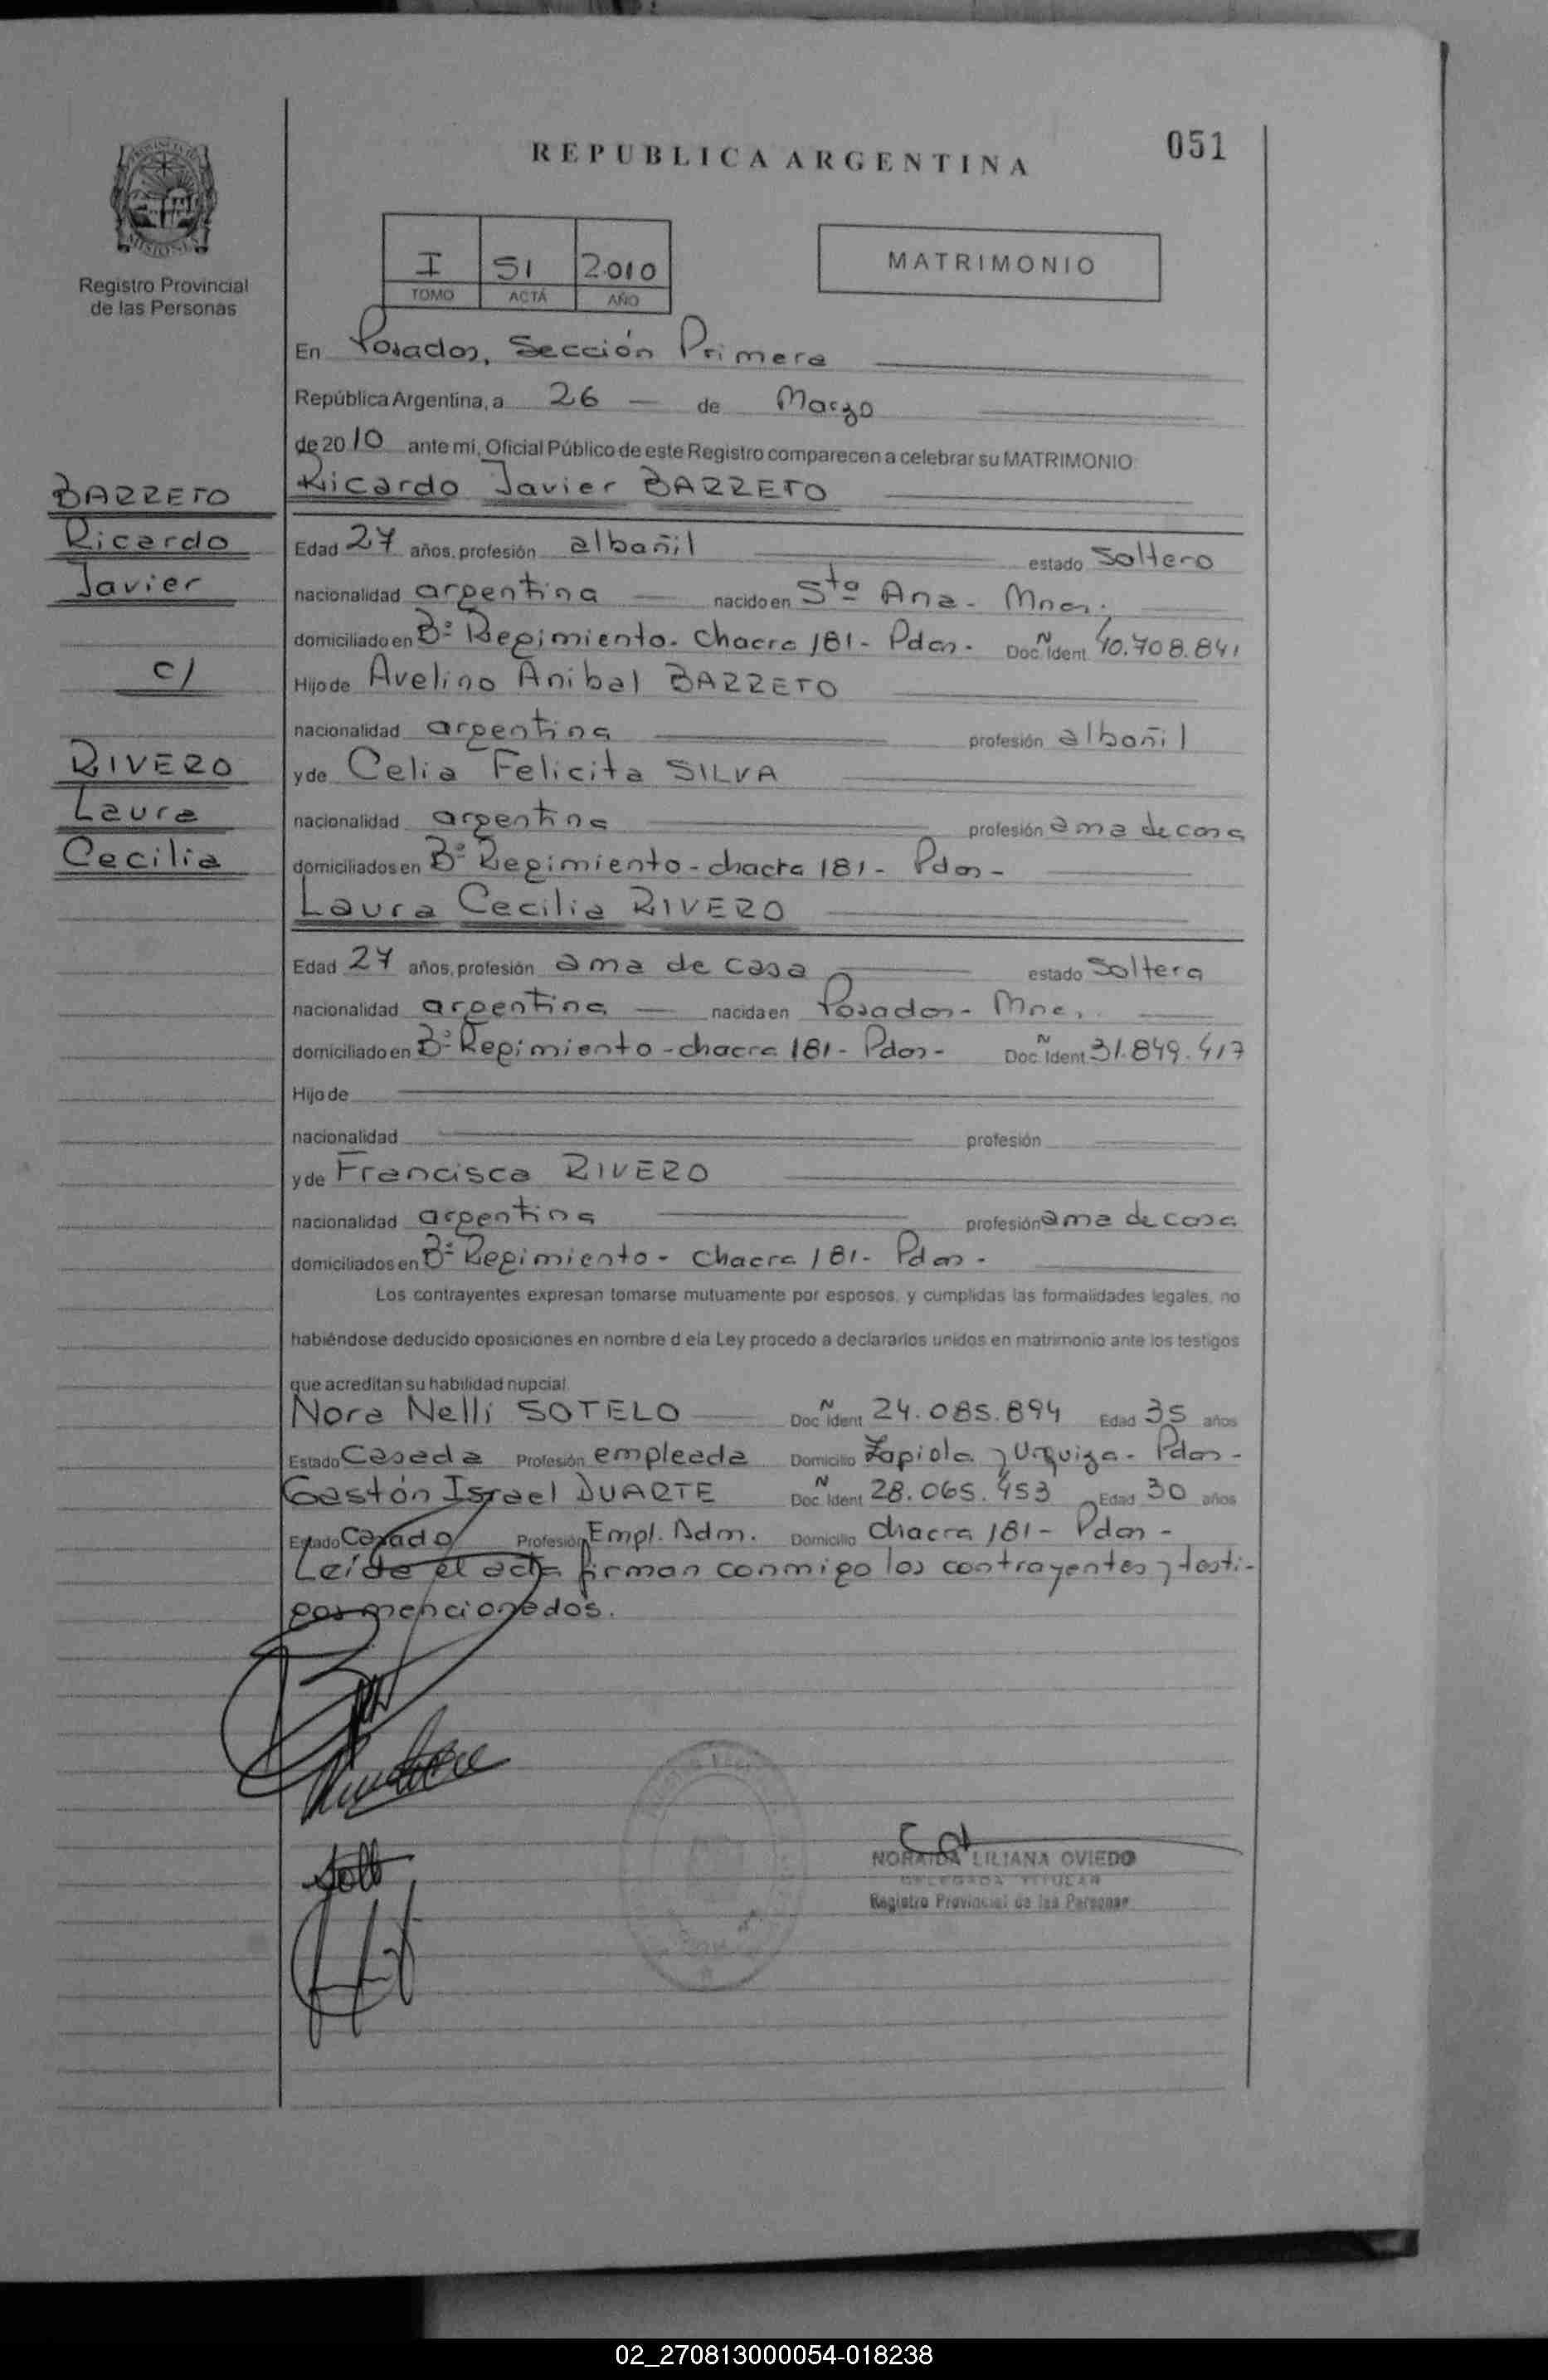 REPUBLICA ARGENTINA
051
PROVINCIA DE
MISIONES
Registro Provincial
de las Personas
I 51 2.010
TOMO ACTA AÑO
MATRIMONIO
En Posadas, Sección Primera
República Argentina, a 26 de Marzo
de 20 10 ante mi, Oficial Público de este Registro comparecen a celebrar su MATRIMONIO
Ricardo Javier BARRETO
BARRETO
Ricardo
Javier
c/
RIVERO
Laura
Cecilia
Edad 27 años, profesión albañil estado soltero
nacionalidad argentina nacido en Sta Ana - Mnes.
domiciliado en Bº Regimiento - chacra 181 - Pdas - Doc. Ident. N 40.708.841
Hijo de Avelino Anibal BARRETO
nacionalidad argentina profesión albañil
y de Celia Felicita SILVA
nacionalidad argentina profesión ama de casa
domiciliados en Bº Regimiento - chacra 181 - Pdas -
Laura Cecilia RIVERO
Edad 27 años, profesión ama de casa estado soltera
nacionalidad argentina nacida en Posadas - Mnes.
domiciliado en Bº Regimiento - chacra 181 - Pdas - Doc. Ident. N 31.849.417
Hijo de
nacionalidad profesión
y de Francisca RIVERO
nacionalidad argentina profesión ama de casa
domiciliados en Bº Regimiento - chacra 181 - Pdas -
Los contrayentes expresan tomarse mutuamente por esposos, y cumplidas las formalidades legales, no
habiéndose deducido oposiciones en nombre d ela Ley procedo a declararlos unidos en matrimonio ante los testigos
que acreditan su habilidad nupcial.
Nora Nelli SOTELO Doc. Ident. N 24.085.894 Edad 35 años
Estado Casada Profesión empleada Domicilio Zapiola y Urquiza - Pdas -
Gastón Israel DUARTE Doc. Ident. N 28.065.453 Edad 30 años
Estado Casado Profesión Empl. Adm. Domicilio chacra 181 - Pdas -
Leída el acta firman conmigo los contrayentes y testi-
gos mencionados.
NORAIDA LILIANA OVIEDO
DELEGADA TITULAR
Registro Provincial de las Personas
02_270813000054-018238